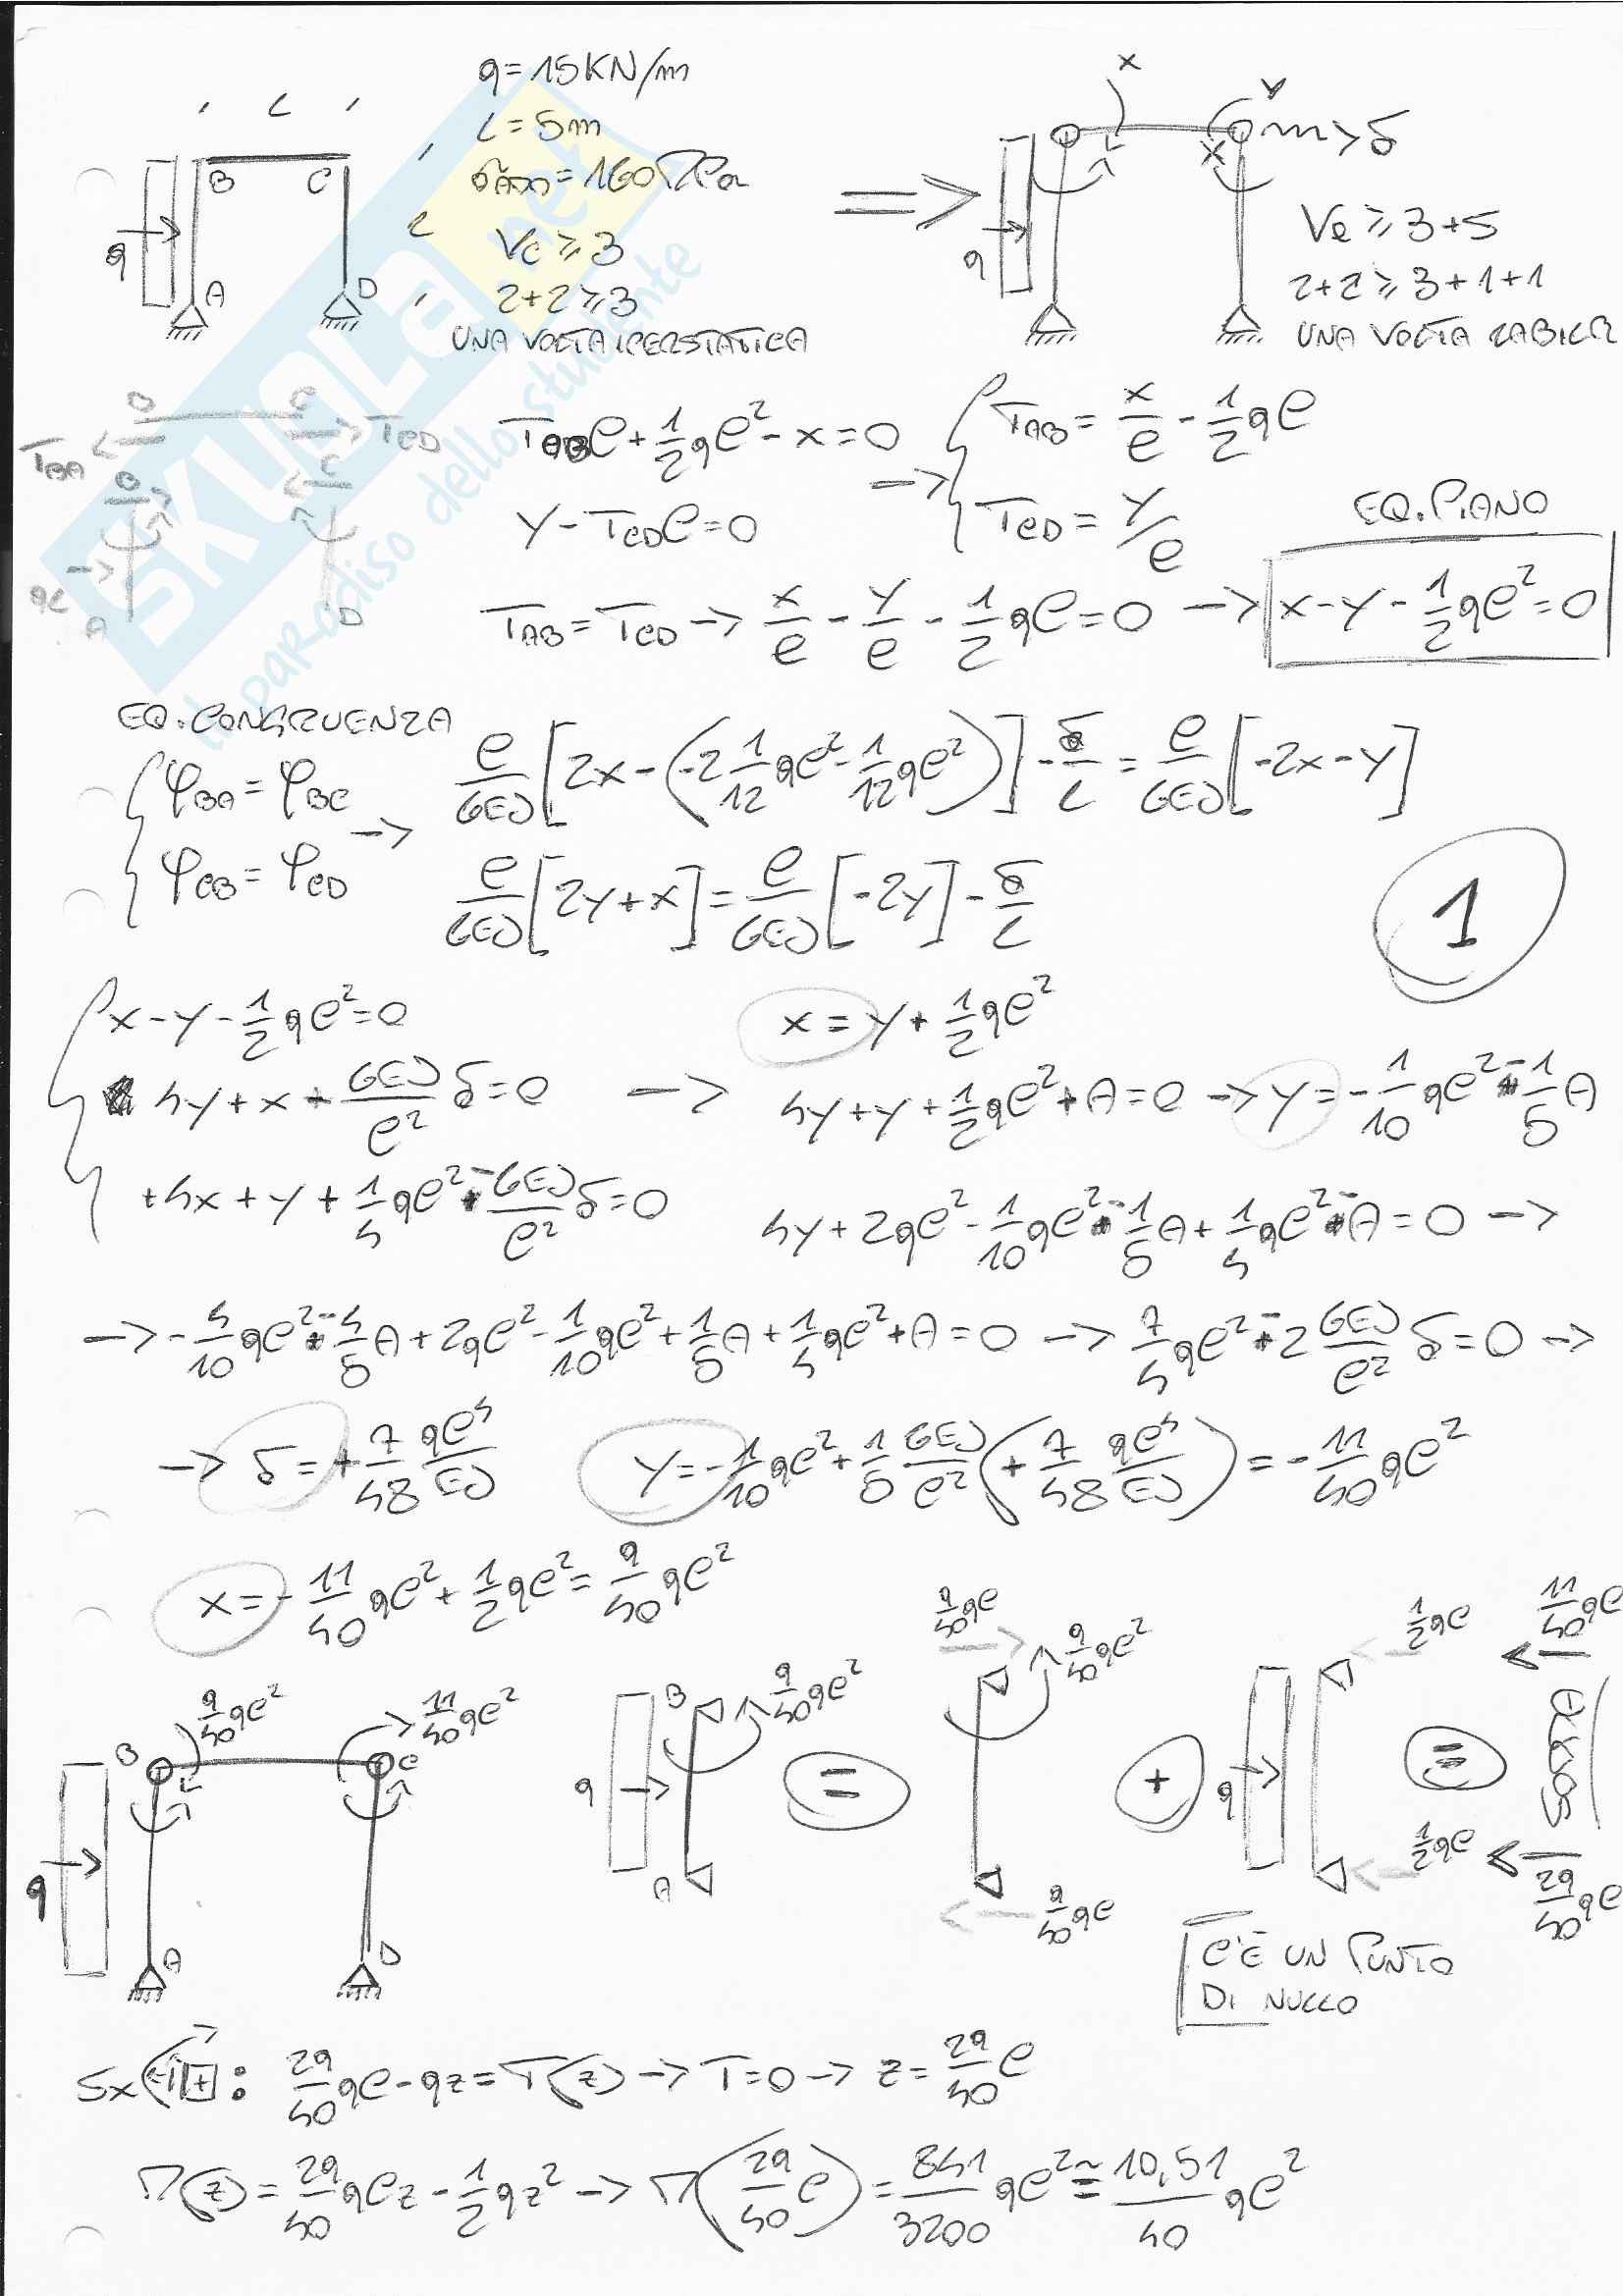 q = 15 KN/m
L
L = 5 m
σAMM = 160 MPa
B C
Vc ≥ 3
2+2 ≥ 3
q A D
UNA VOLTA IPERSTATICA
=>
x y
x δ
q
Ve ≥ 3+5
2+2 ≥ 3+1+1
UNA VOLTA LABILE
B C
TBA TCD
B C
qL A D
TABℓ + 1/2 qℓ² - x = 0
y - TCDℓ = 0
->
TAB = x/ℓ - 1/2 qℓ
TCD = y/ℓ
EQ. PIANO
TAB = TCD -> x/ℓ - y/ℓ - 1/2 qℓ = 0 -> x - y - 1/2 qℓ² = 0
EQ. CONGRUENZA
φBA = φBC
φCB = φCD
->
ℓ/6EJ [2x - (-2 1/12 qℓ² - 1/12 qℓ²)] - δ/L = ℓ/6EJ [-2x - y]
ℓ/6EJ [2y + x] = ℓ/6EJ [-2y] - δ/L
1
x - y - 1/2 qℓ² = 0
x = y + 1/2 qℓ²
4y + x + 6EJ/ℓ² δ = 0 -> 4y + y + 1/2 qℓ² + A = 0 -> y = -1/10 qℓ² - 1/5 A
+4x + y + 1/4 qℓ² - 6EJ/ℓ² δ = 0
4y + 2qℓ² - 1/10 qℓ² - 1/5 A + 1/4 qℓ² - A = 0 ->
-> -4/10 qℓ² - 4/5 A + 2qℓ² - 1/10 qℓ² + 1/5 A + 1/4 qℓ² + A = 0 -> 7/4 qℓ² - 2 6EJ/ℓ² δ = 0 ->
-> δ = + 7/48 qℓ⁴/EJ
y = -1/10 qℓ² + 1/5 6EJ/ℓ² (+ 7/48 qℓ⁴/EJ) = -11/40 qℓ²
x = -11/40 qℓ² + 1/2 qℓ² = 9/40 qℓ²
9/40 qℓ² 11/40 qℓ²
B C
q
A D
B 9/40 qℓ²
q
A
=
9/40 qℓ
9/40 qℓ²
9/40 qℓ
+
1/2 qℓ
q
1/2 qℓ
=
11/40 qℓ
29/40 qℓ
C'È UN PUNTO
DI NULLO
Sx (T +): 29/40 qℓ - qz = T(z) -> T = 0 -> z = 29/40 ℓ
M(z) = 29/40 qℓz - 1/2 qz² -> M(29/40 ℓ) = 841/3200 qℓ² ≈ 10,51/40 qℓ²
SKUOLA.net
il paradiso dello studente